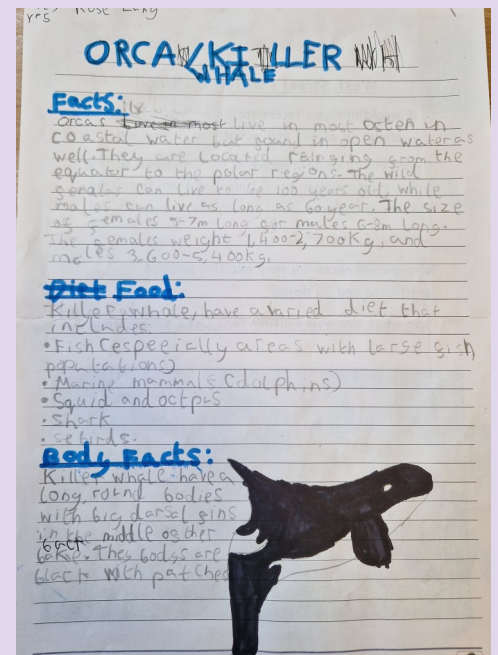 Rose
yr5
ORCA/KILLER
WHALE
Facts:
Orcas Live in most Live in most osten in
coastal water but sound in open water as
well. They are Located ranging srom the
equator to the polar regions. The wild
semales can live to be 100 years old, while
males can live as long as 60 year. The size
os semales 5-7m long sor males 6-8m long.
The semales weight 1,400-2,700kg, and
males 3,600-5,400kg.
Diet Food:
Killer whale, have a varied diet that
includes:
•Fish (especially areas with large sish
populations)
•Marine mammals (dolphins)
•Squid and octpus
•Shark
•sebirds.
Body Facts:
Killer whale have a
long, round bodies
with big darsal sins
in the middle os ther
back
bake. Thes bodys are
black with patches